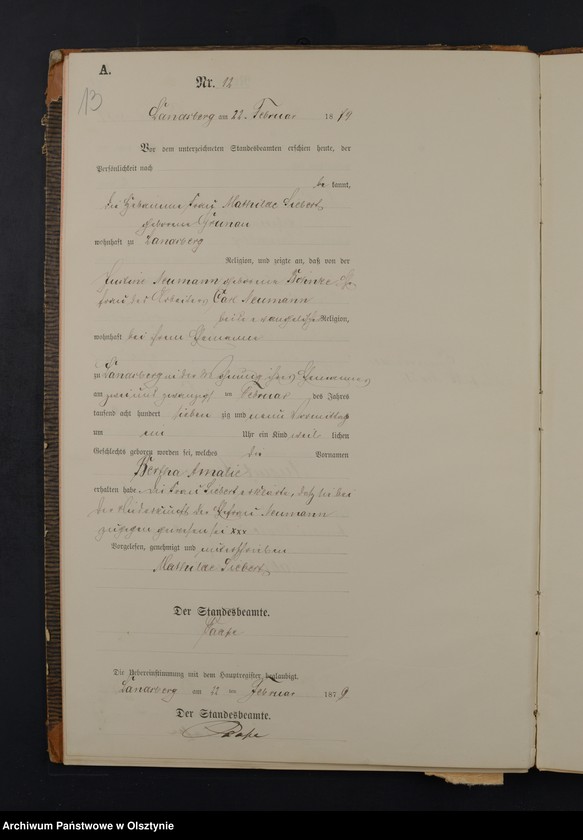 A.
Nr. 12
13
am 22ten Februar 1879
Vor dem unterzeichneten Standesbeamten erschien heute, der
Persönlichkeit nach
be kannt,
die Hebamme Frau Mathilde Siebert,
geborene Grunau
wohnhaft zu
Religion, und zeigte an, daß von der
Neumann geborene Ehe-
frau des Arbeiters Carl Neumann
beide evangelischer Religion,
wohnhaft bei ihrem Ehemanne
zu in der Wohnung ihres Ehemannes
am zwei und zwanzigsten Februar des Jahres
tausend acht hundert sieben zig und neun Vormittag
um ein Uhr ein Kind weib lichen
Geschlechts geboren worden sei, welches die Vornamen
Bertha Amalie
erhalten habe. Die Frau Siebert erklärte, daß sie bei
der Niederkunft der Ehefrau Neumann
zugegen gewesen sei xxx
Vorgelesen, genehmigt und unterschrieben
Mathilde Siebert
Der Standesbeamte.
Die Uebereinstimmung mit dem Hauptregister beglaubigt.
am 22 ten Februar 1879
Der Standesbeamte.
Archiwum Państwowe w Olsztynie